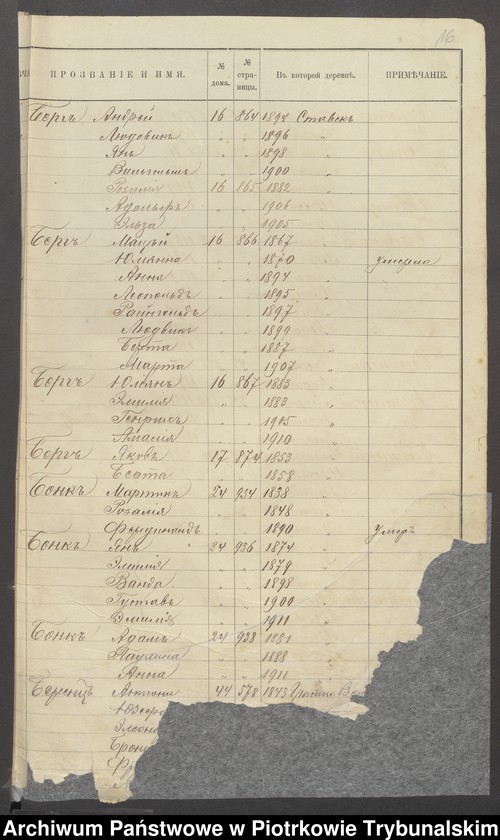 16
ПРОЗВАНІЕ И ИМЯ. № дома. № страницы. Въ которой деревнѣ. ПРИМѢЧАНІЕ.
Боргъ Андрей 16 864 1894 Ставекъ
Людовикъ " " 1896 "
Янъ " " 1898 "
Вильгельмъ " " 1900 "
Розалія 16 865 1882 "
Адольфъ " " 1906 "
Эльза " " 1905 "
Боргъ Мацей 16 866 1867 "
Юліянна " " 1870 " умерла
Анна " " 1894 "
Леопольдъ " " 1895 "
Райнгольдъ " " 1897 "
Людвикъ " " 1899 "
Берта " " 1887 "
Марта " " 1907 "
Боргъ Юліянъ 16 867 1883 "
Эмилія " " 1883 "
Генрихъ " " 1905 "
Амалія " " 1910 "
Боргъ Яковъ 17 874 1853 "
Беата " " 1858 "
Бонкъ Мартинъ 24 934 1838 "
Розалія " " 1848 "
Фердинандъ " " 1890 " умеръ
Бонкъ Янъ 24 936 1874 "
Эмилія " " 1879 "
Ванда " " 1898 "
Густавъ " " 1900 "
Эмилія " " 1911 "
Бонкъ Адамъ 24 938 1881 "
Паулина " " 1888 "
Анна " " 1911 "
Антони 44 578 1843
Юзефа
Брони
Archiwum Państwowe w Piotrkowie Trybunalskim